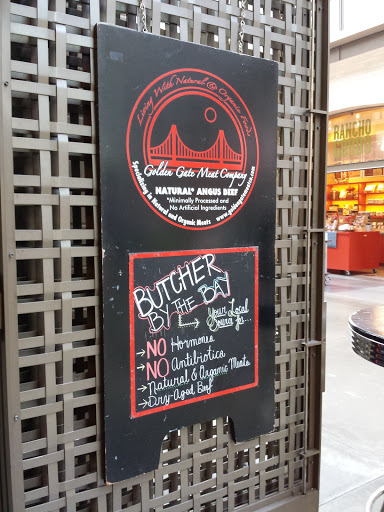 Living With Natural & Organic Foods
Golden Gate Meat Company
Specializing in Natural and Organic Meats
NATURAL* ANGUS BEEF
*Minimally Processed and
No Artificial Ingredients
BUTCHER
BY THE BAY
Your Local
Source for...
→ NO Hormones
→ NO Antibiotics
→ Natural & Organic Meats
→ Dry-Aged Beef
RANCHO